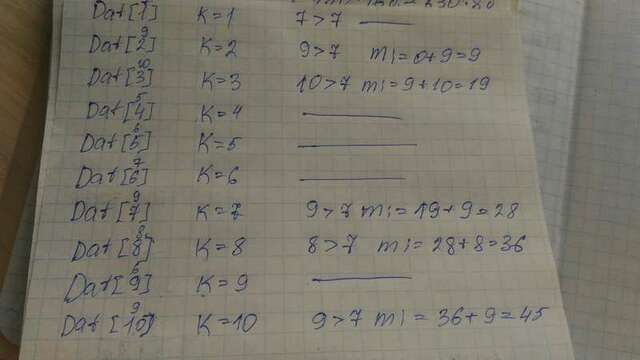 Dat[1] 7 K=1 7>7 —
Dat[2] 9 K=2 9>7 m:=0+9=9
Dat[3] 10 K=3 10>7 m:=9+10=19
Dat[4] 5 K=4 —
Dat[5] 6 K=5 —
Dat[6] 7 K=6 —
Dat[7] 9 K=7 9>7 m:=19+9=28
Dat[8] 8 K=8 8>7 m:=28+8=36
Dat[9] K=9 —
Dat[10] 9 K=10 9>7 m:=36+9=45